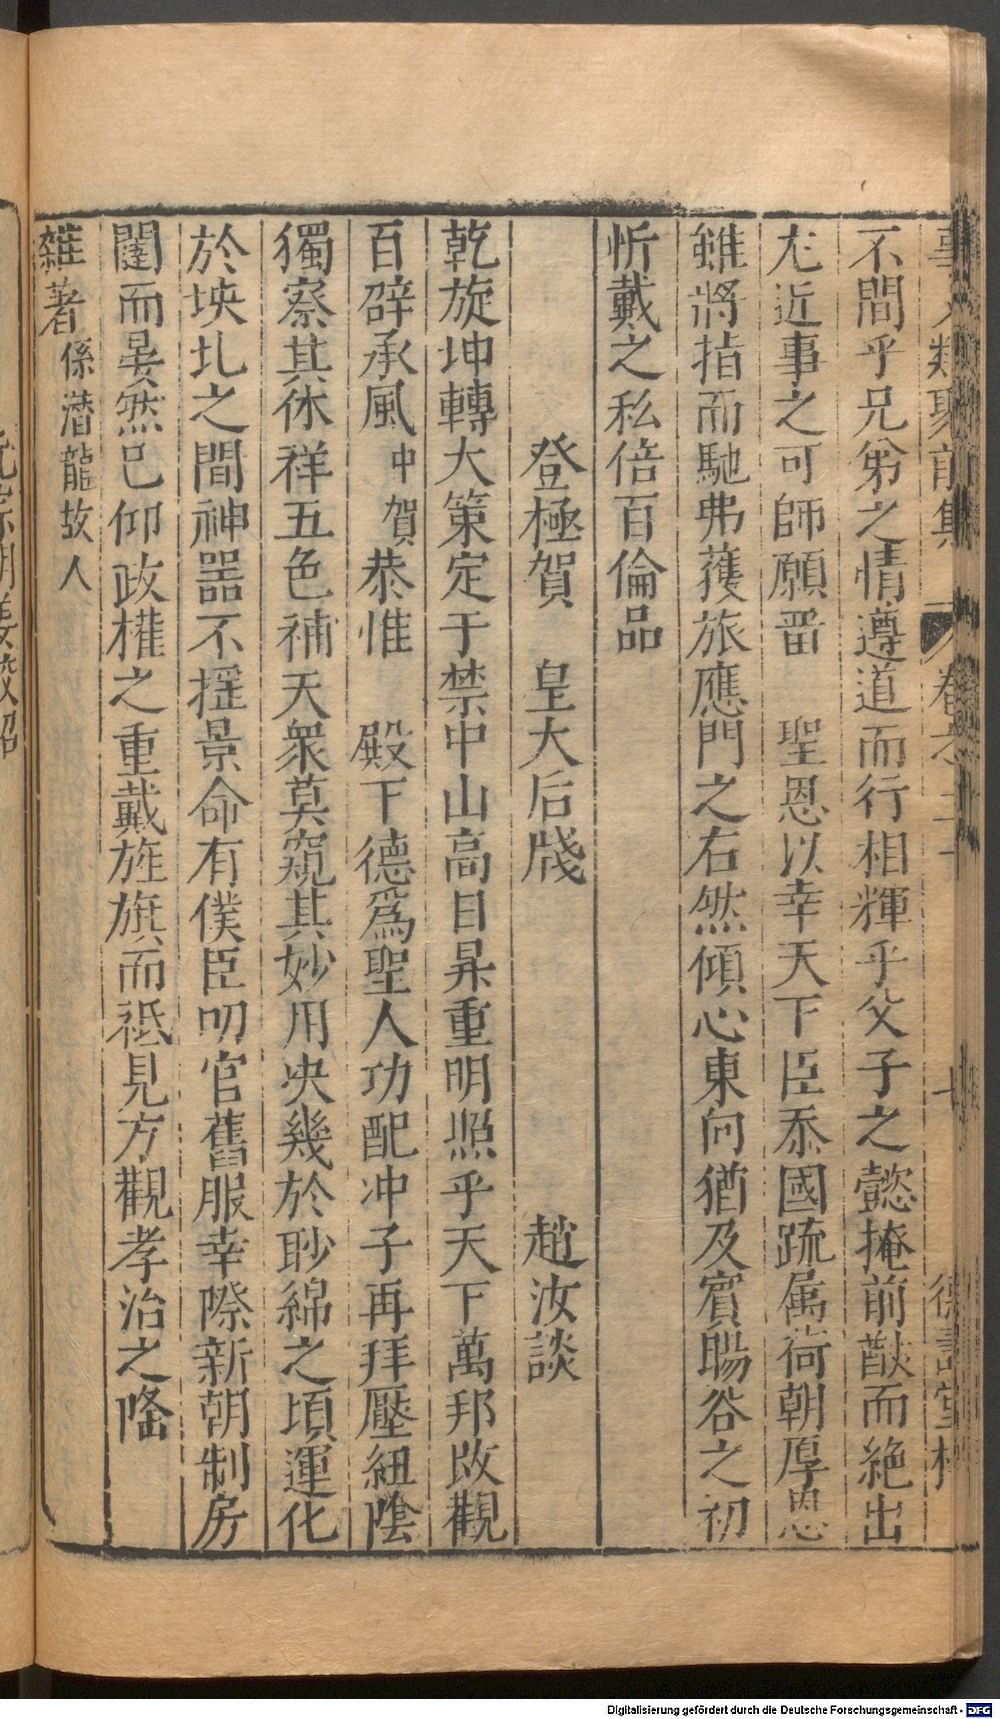 事文類聚前集 卷之二十 七 德壽堂梓
不間乎兄弟之情遵道而行相輝乎父子之懿掩前猷而絶出
尤近事之可師願畱 聖恩以幸天下臣忝國疏属荷朝厚恩
雖將指而馳弗獲旅應門之右然傾心東向猶及賓暘谷之初
忻戴之私倍百倫品
登極賀 皇大后牋 趙汝談
乾旋坤轉大策定于禁中山高日昇重明照乎天下萬邦改觀
百辟承風中賀恭惟 殿下德爲聖人功配冲子再拜壓紐陰
獨察其休祥五色補天衆莫窺其妙用决幾於眇綿之頃運化
於坱圠之間神器不揺景命有僕臣叨官舊服幸際新朝制房
闥而晏然已仰政權之重戴旌旗而祗見方觀孝治之隆
雜著 係潜龍故人
Digitalisierung gefördert durch die Deutsche Forschungsgemeinschaft - DFG